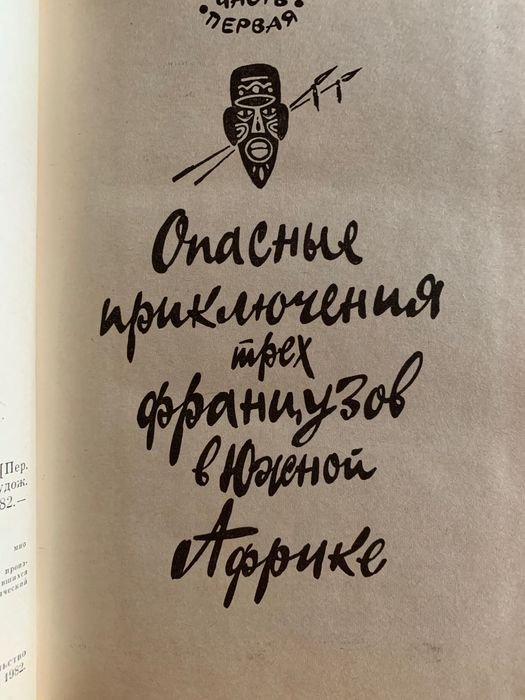 ЧАСТЬ
ПЕРВАЯ
Опасные
приключения
трех
французов
в Южной
Африке
[Пер.
удож.
82.—
мно
произ-
вшихся
ический
льство
1982.